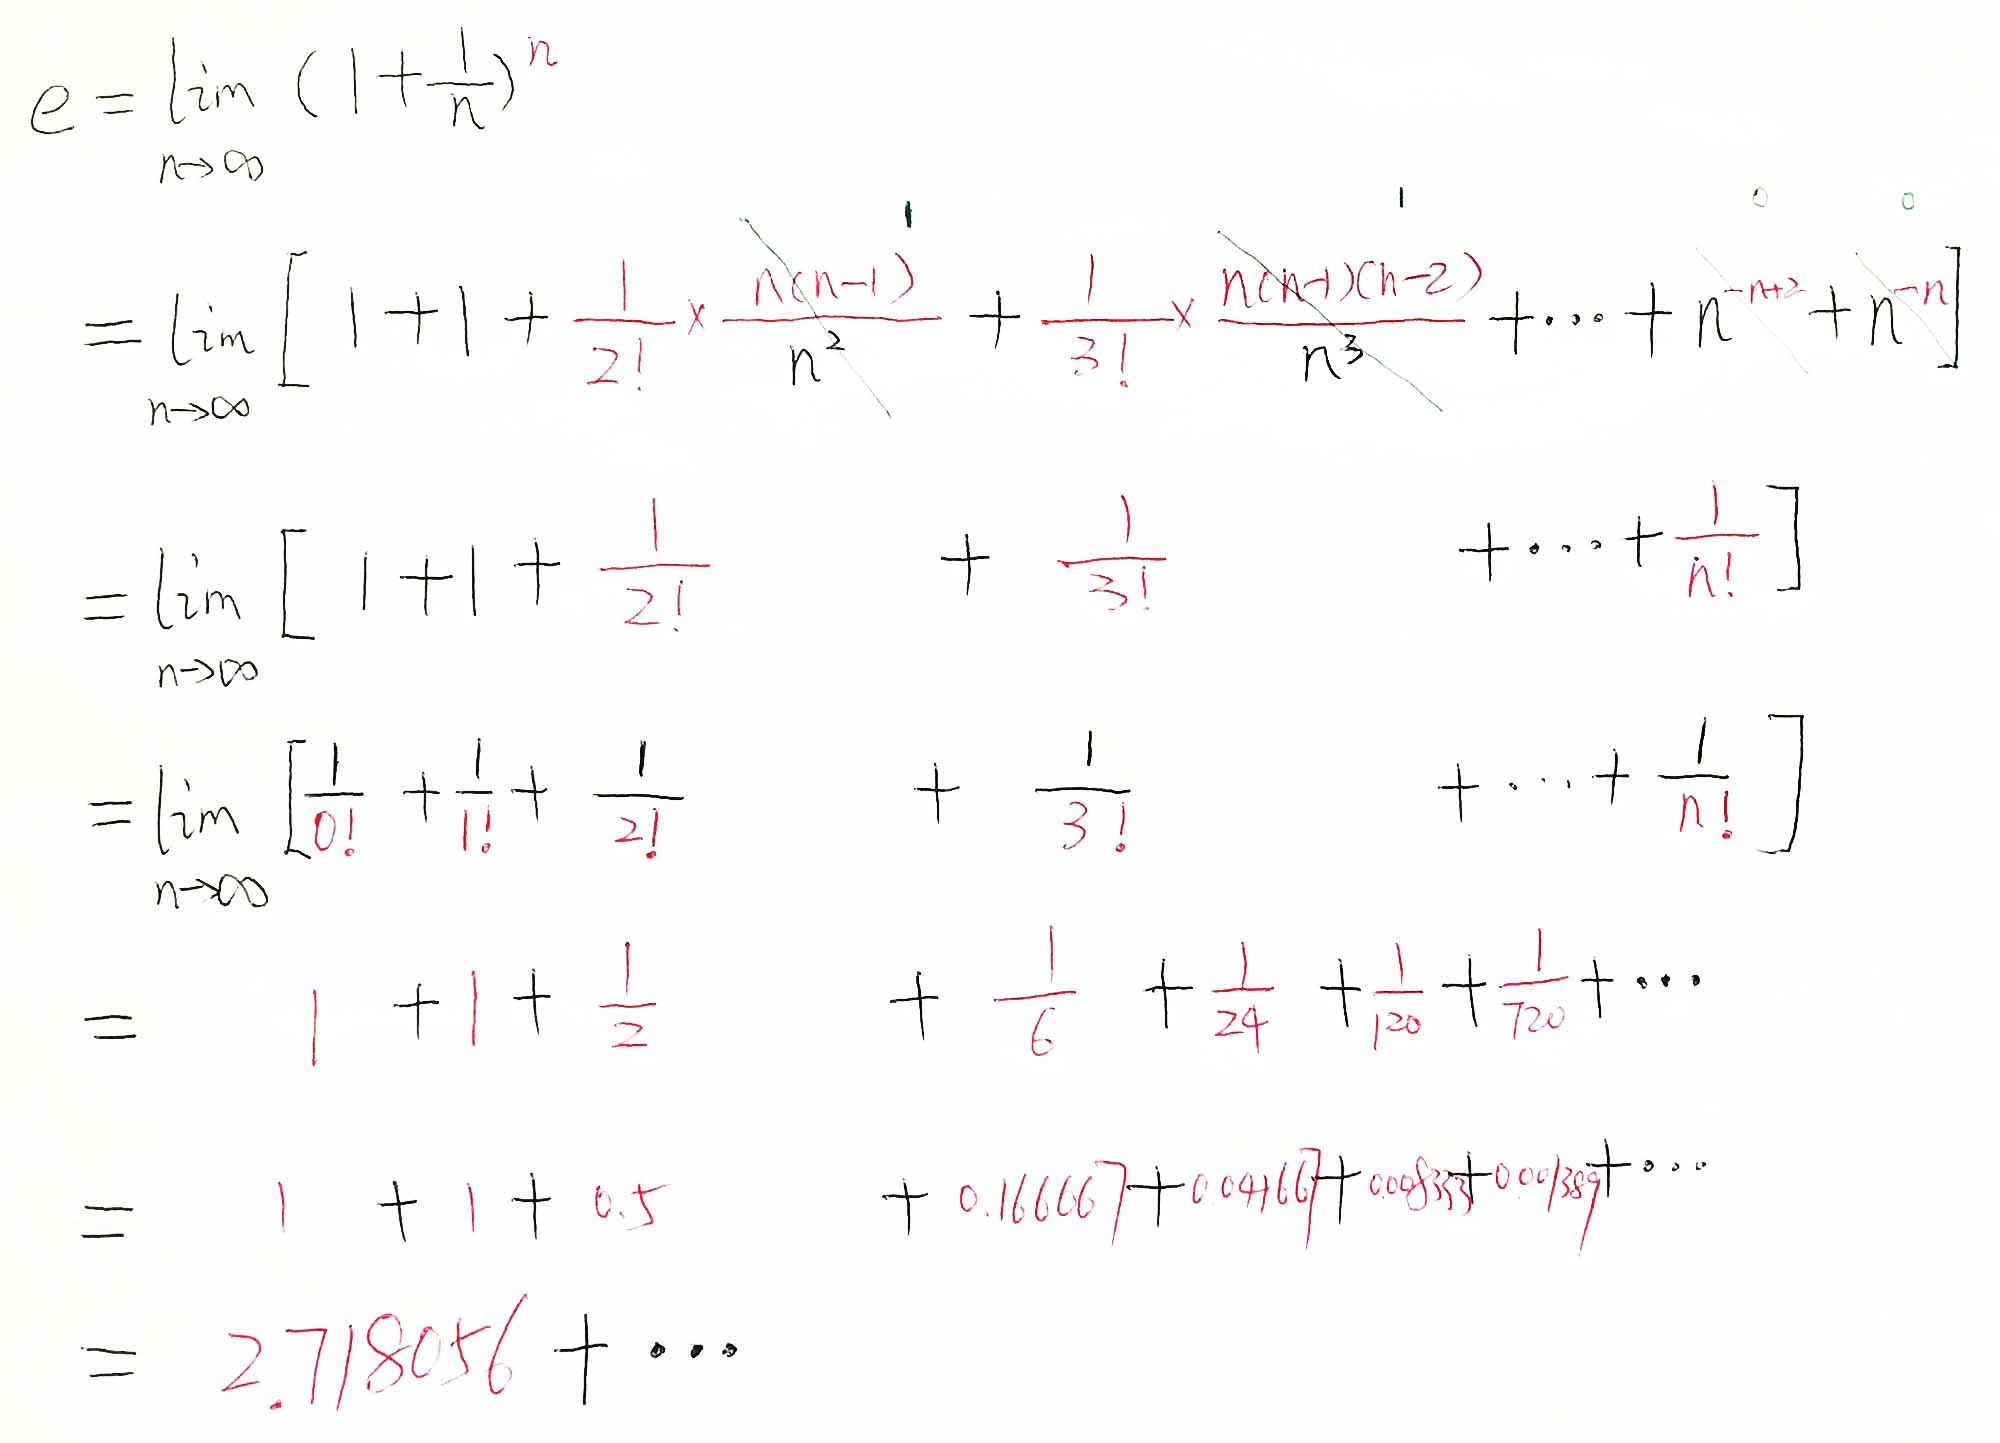 e = lim n→∞ (1 + 1/n)^n
= lim n→∞ [ 1 + 1 + 1/2! × n(n-1)/n^2 1 + 1/3! × n(n-1)(n-2)/n^3 1 + ··· + n^(-n+2) 0 + n^(-n) 0 ]
= lim n→∞ [ 1 + 1 + 1/2! + 1/3! + ··· + 1/n! ]
= lim n→∞ [ 1/0! + 1/1! + 1/2! + 1/3! + ··· + 1/n! ]
= 1 + 1 + 1/2 + 1/6 + 1/24 + 1/120 + 1/720 + ···
= 1 + 1 + 0.5 + 0.166667 + 0.04167 + 0.008333 + 0.001389 + ···
= 2.718056 + ···